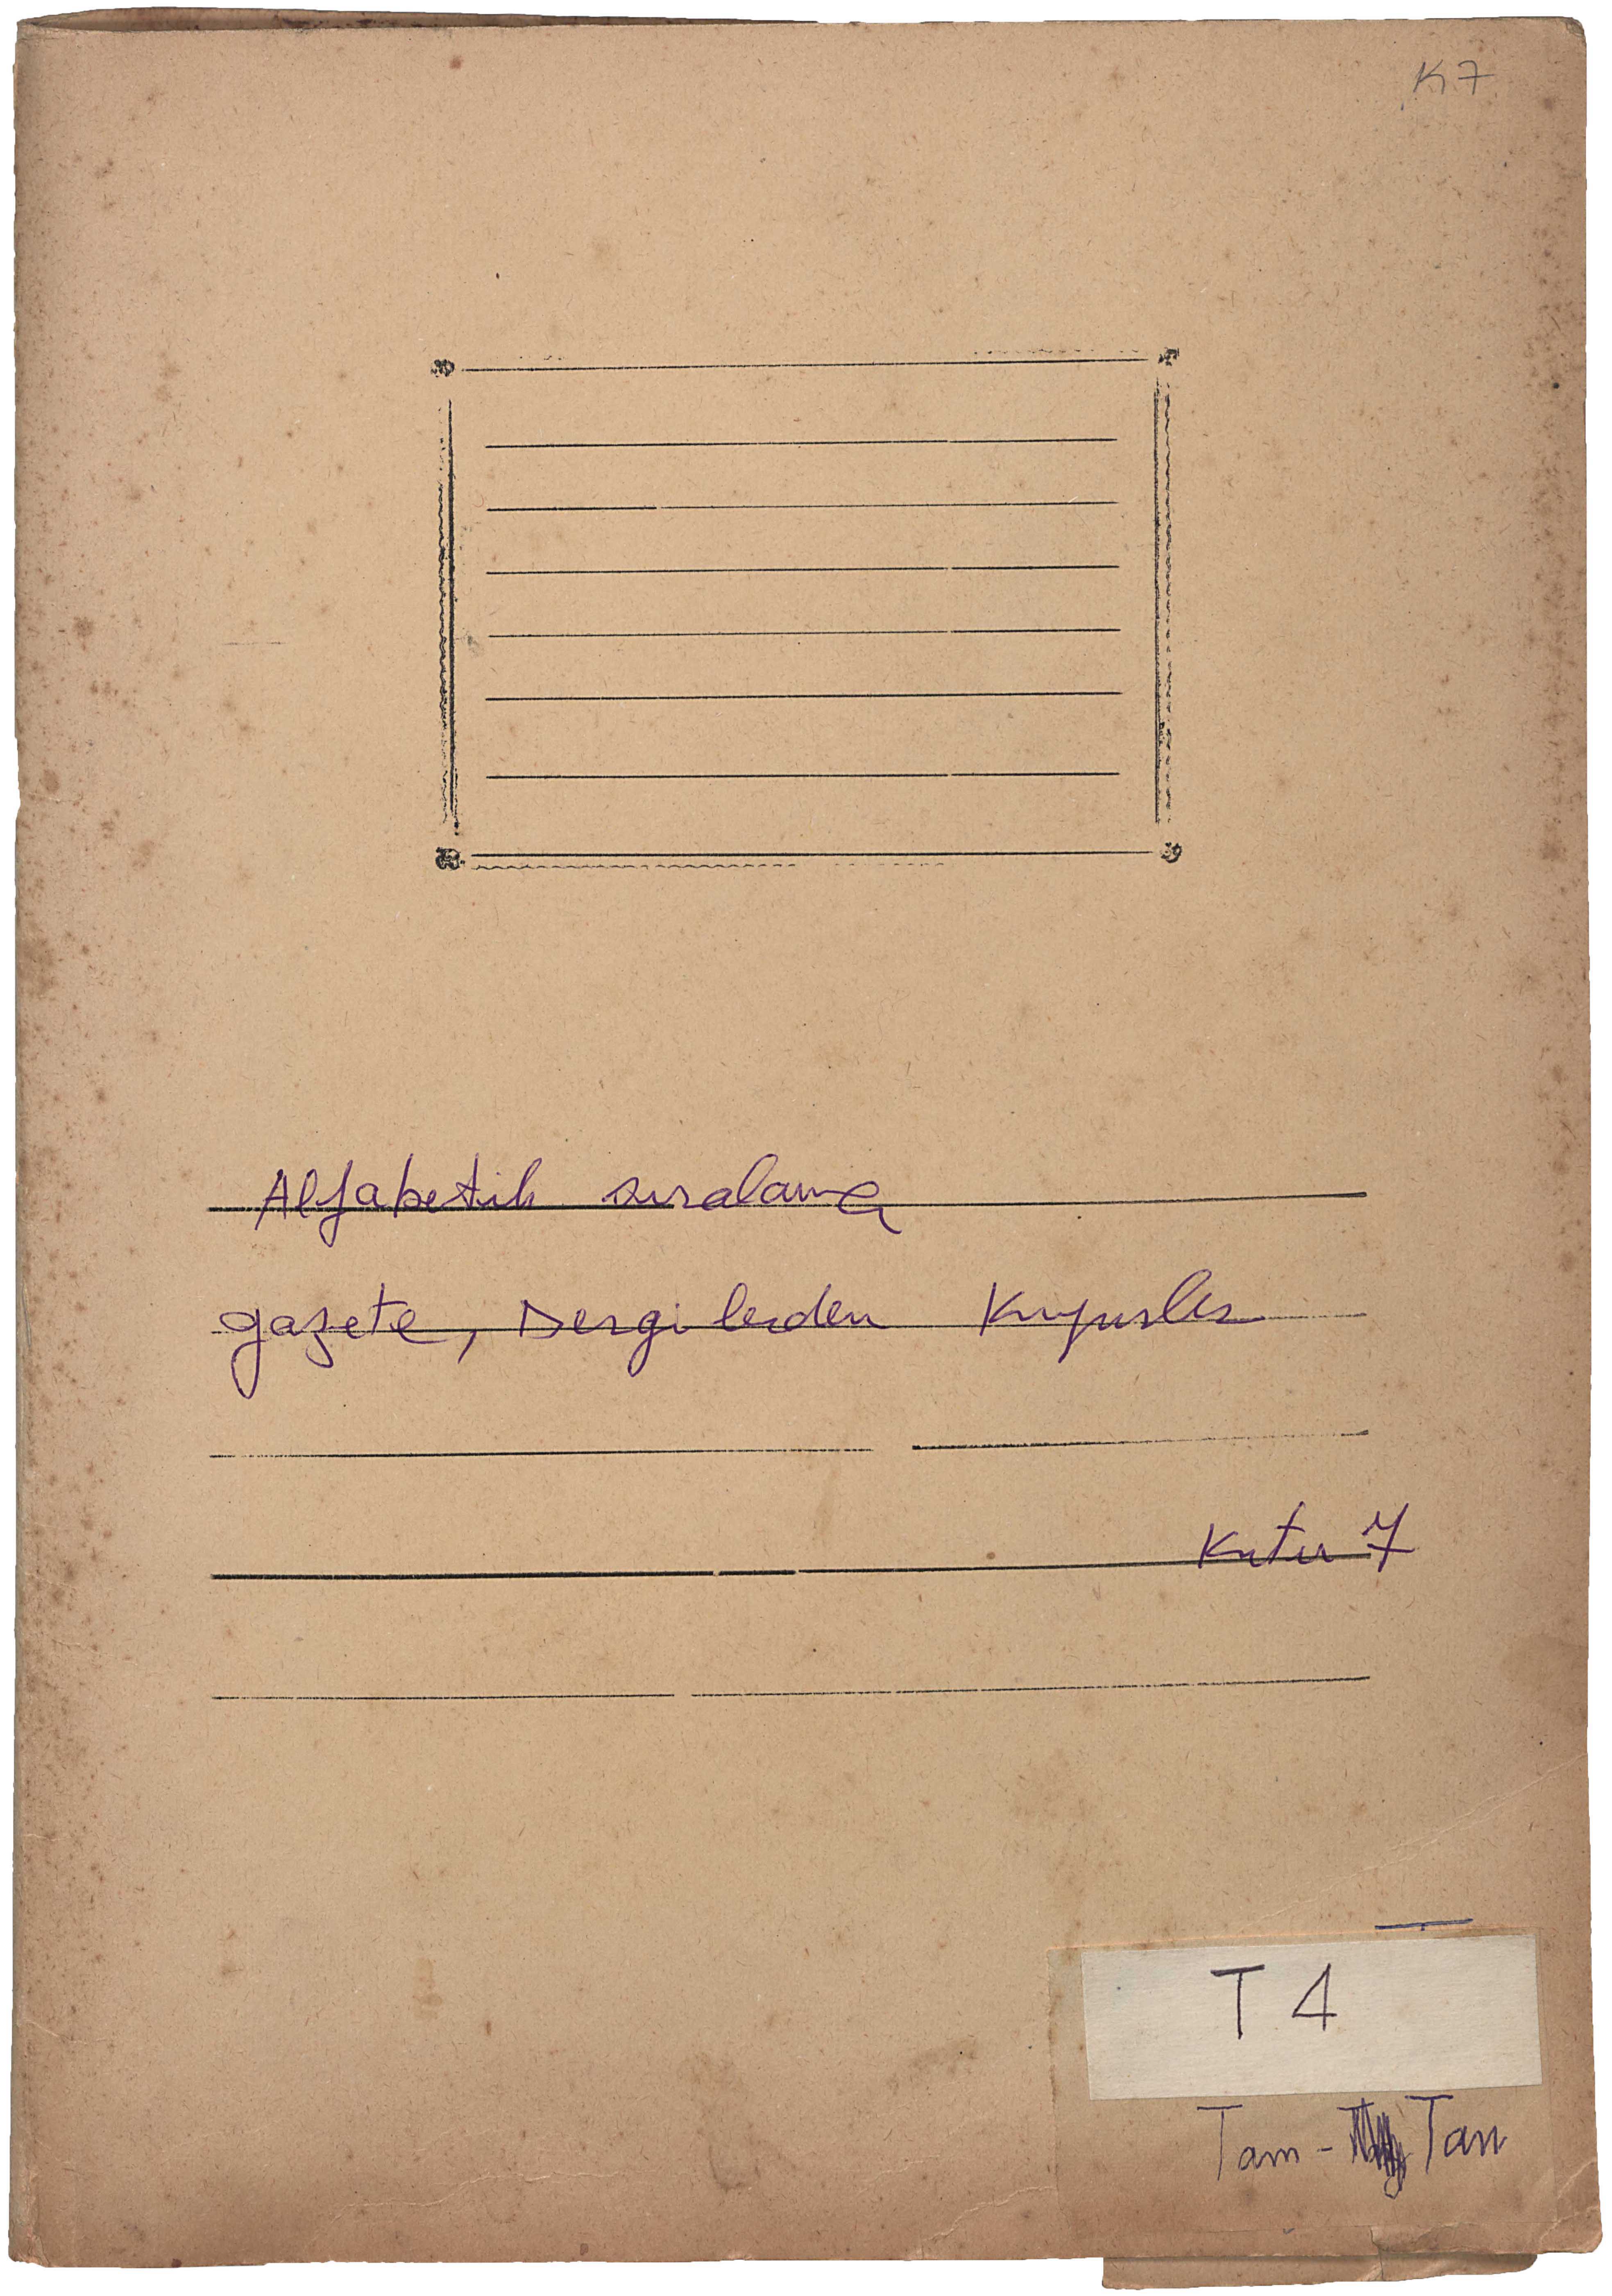 K7
Alfabetik sıralama
gazete, Dergilerden Kupürler
Kutu 7
T 4
Tam - Tan